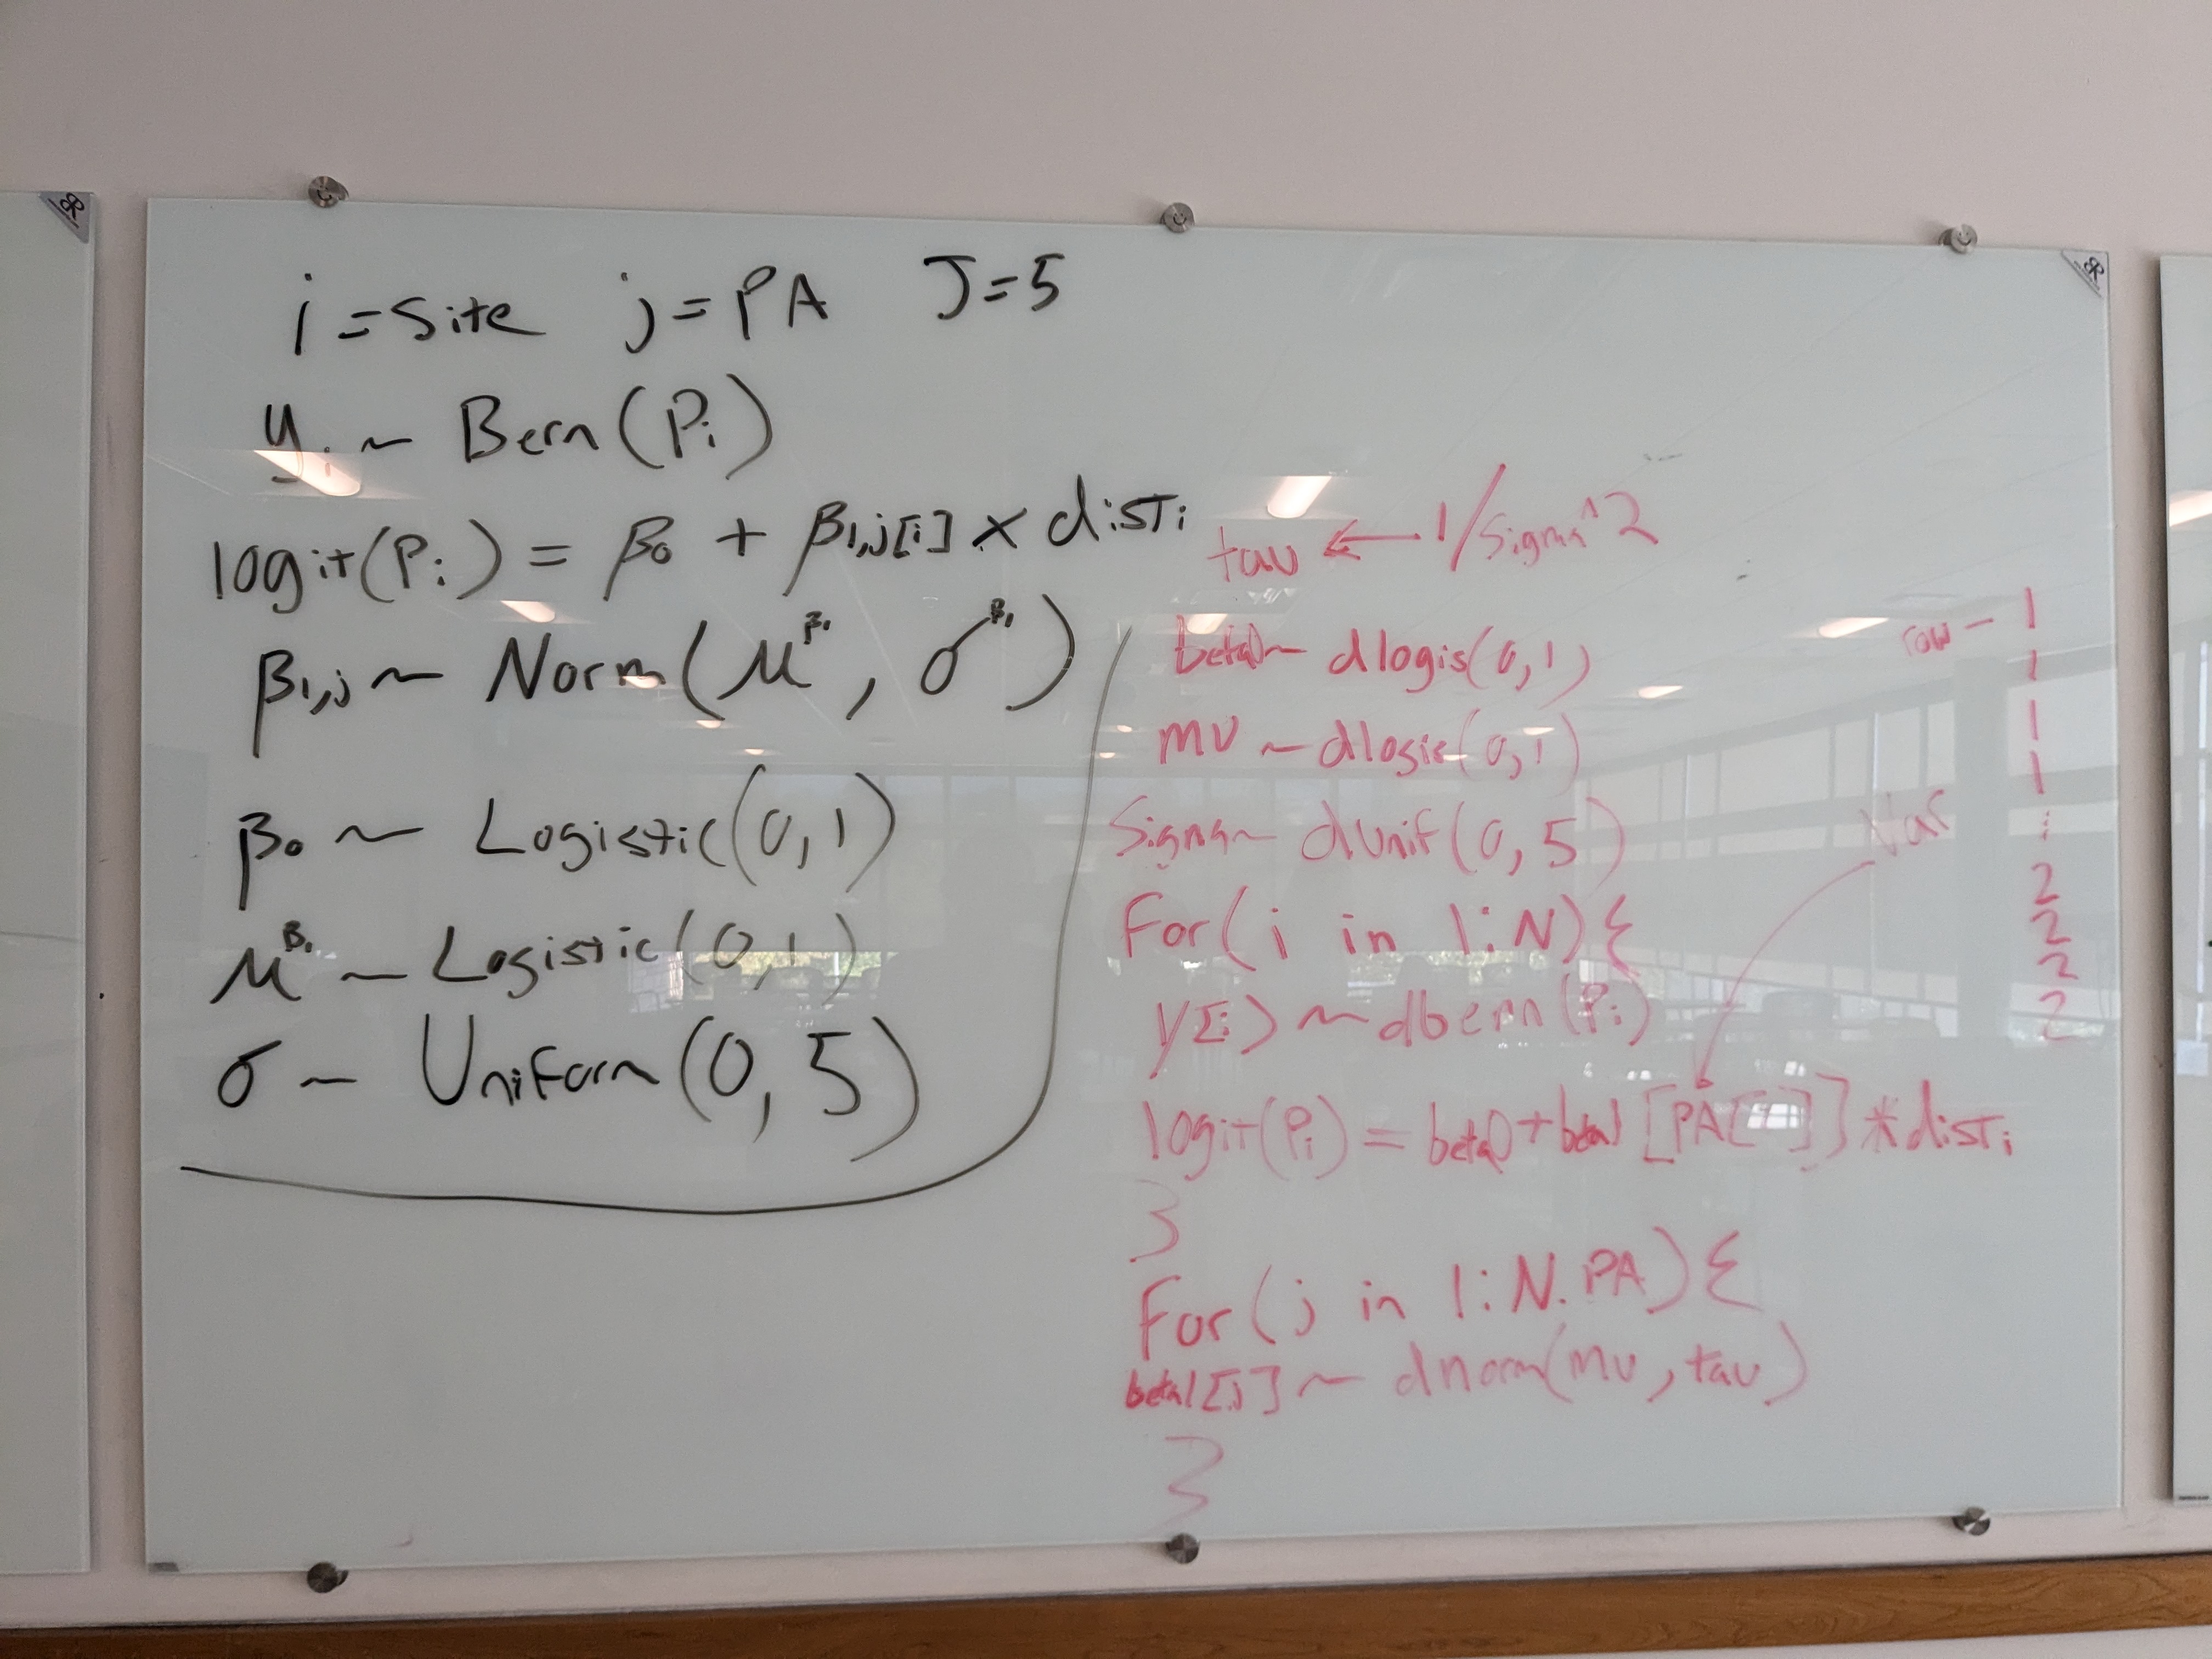 i = Site j = PA J = 5
y_i ~ Bern(P_i)
logit(P_i) = β_0 + β_{1,j[i]} × dist_i
β_{1,j} ~ Norm(μ^{β_1}, σ^{β_1})
β_0 ~ Logistic(0,1)
μ^{β_1} ~ Logistic(0,1)
σ ~ Uniform(0,5)
tau ← 1/Sigma^2
beta0 ~ dlogis(0,1)
mu ~ dlogis(0,1)
Sigma ~ dunif(0,5)
For(i in 1:N){
y[i] ~ dbern(P_i)
logit(P_i) = beta0 + beta1[PA[i]] * dist_i
}
For(j in 1:N.PA){
beta1[j] ~ dnorm(mu, tau)
}
row - 1
1
1
1
:
2
2
2
2
Var